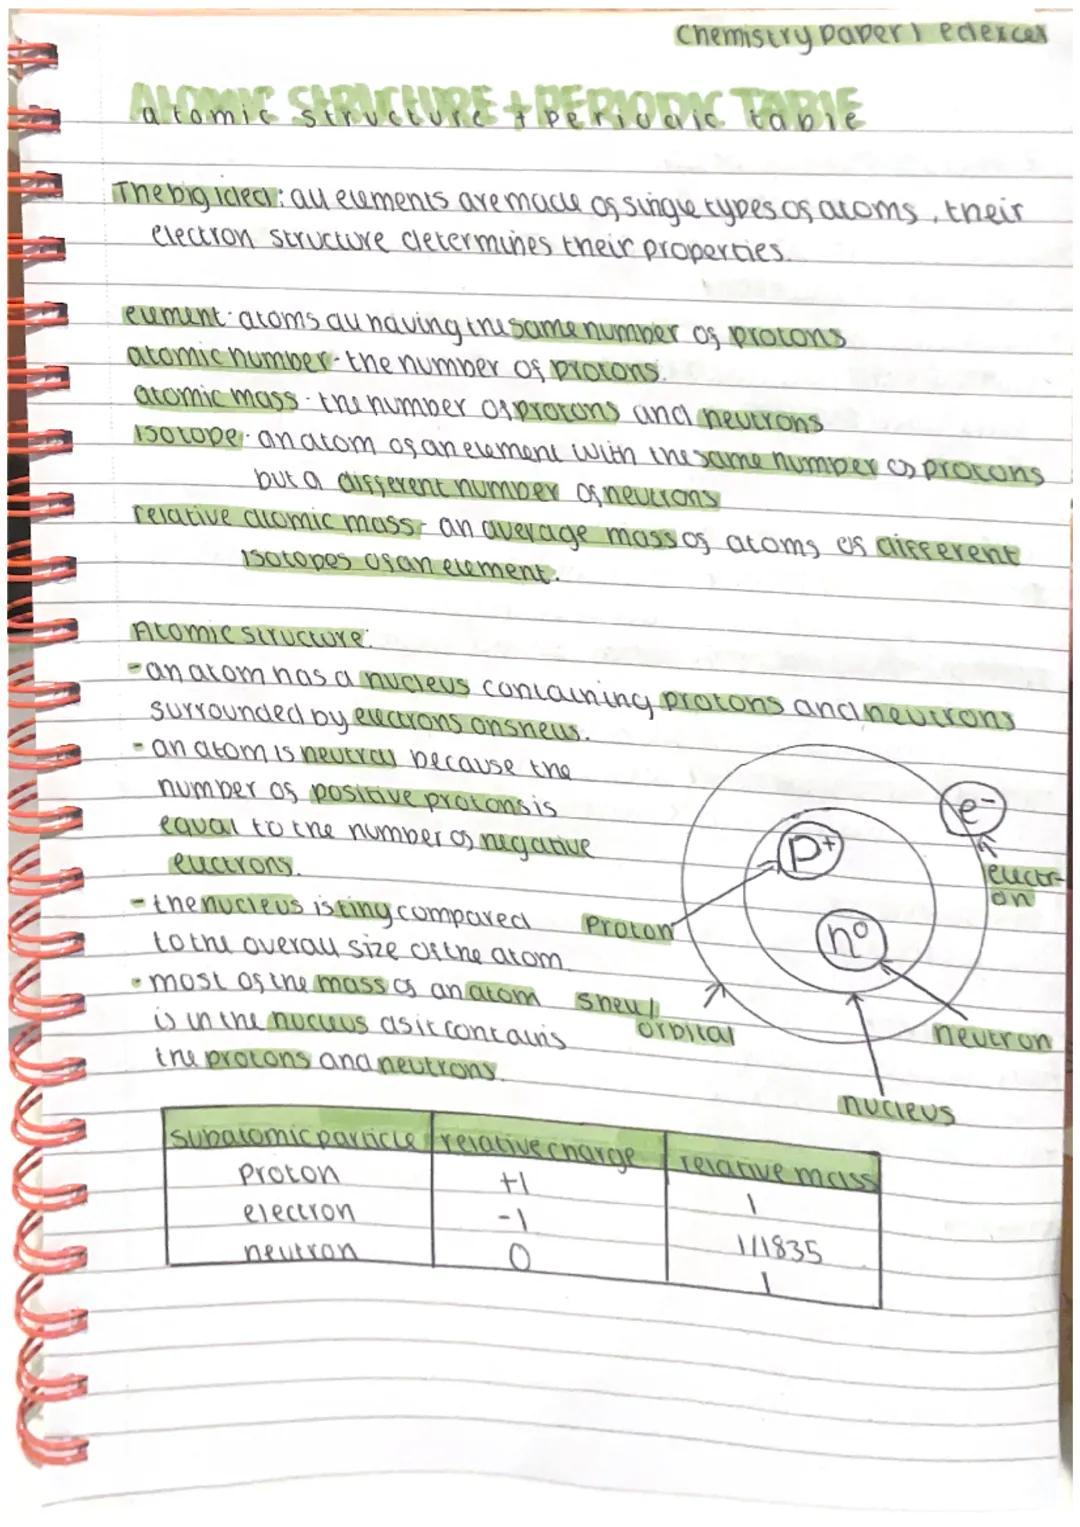 Chemistry paper 1 edexcel
ATOMIC STRUCTURE + PERIODIC TABLE
atomic structure + periodic table
The big idea: all elements are made of single types of atoms, their
electron structure determines their properties.
element - atoms all having the same number of protons
atomic number - the number of protons.
atomic mass - the number of protons and neutrons
isotope - an atom of an element with the same number of protons
but a different number of neutrons
relative atomic mass - an average mass of atoms of different
isotopes of an element.
Atomic structure:
- an atom has a nucleus containing protons and neutrons
surrounded by electrons on shells.
- an atom is neutral because the
number of positive protons is
equal to the number of negative
electrons.
- the nucleus is tiny compared
to the overall size of the atom.
- most of the mass of an atom
is in the nucleus as it contains
the protons and neutrons.
e-
p+
electr-
on
Proton
n0
shell/
orbital
neutron
nucleus
subatomic particle relative charge relative mass
Proton +1 1
electron -1 1/1835
neutron 0 1